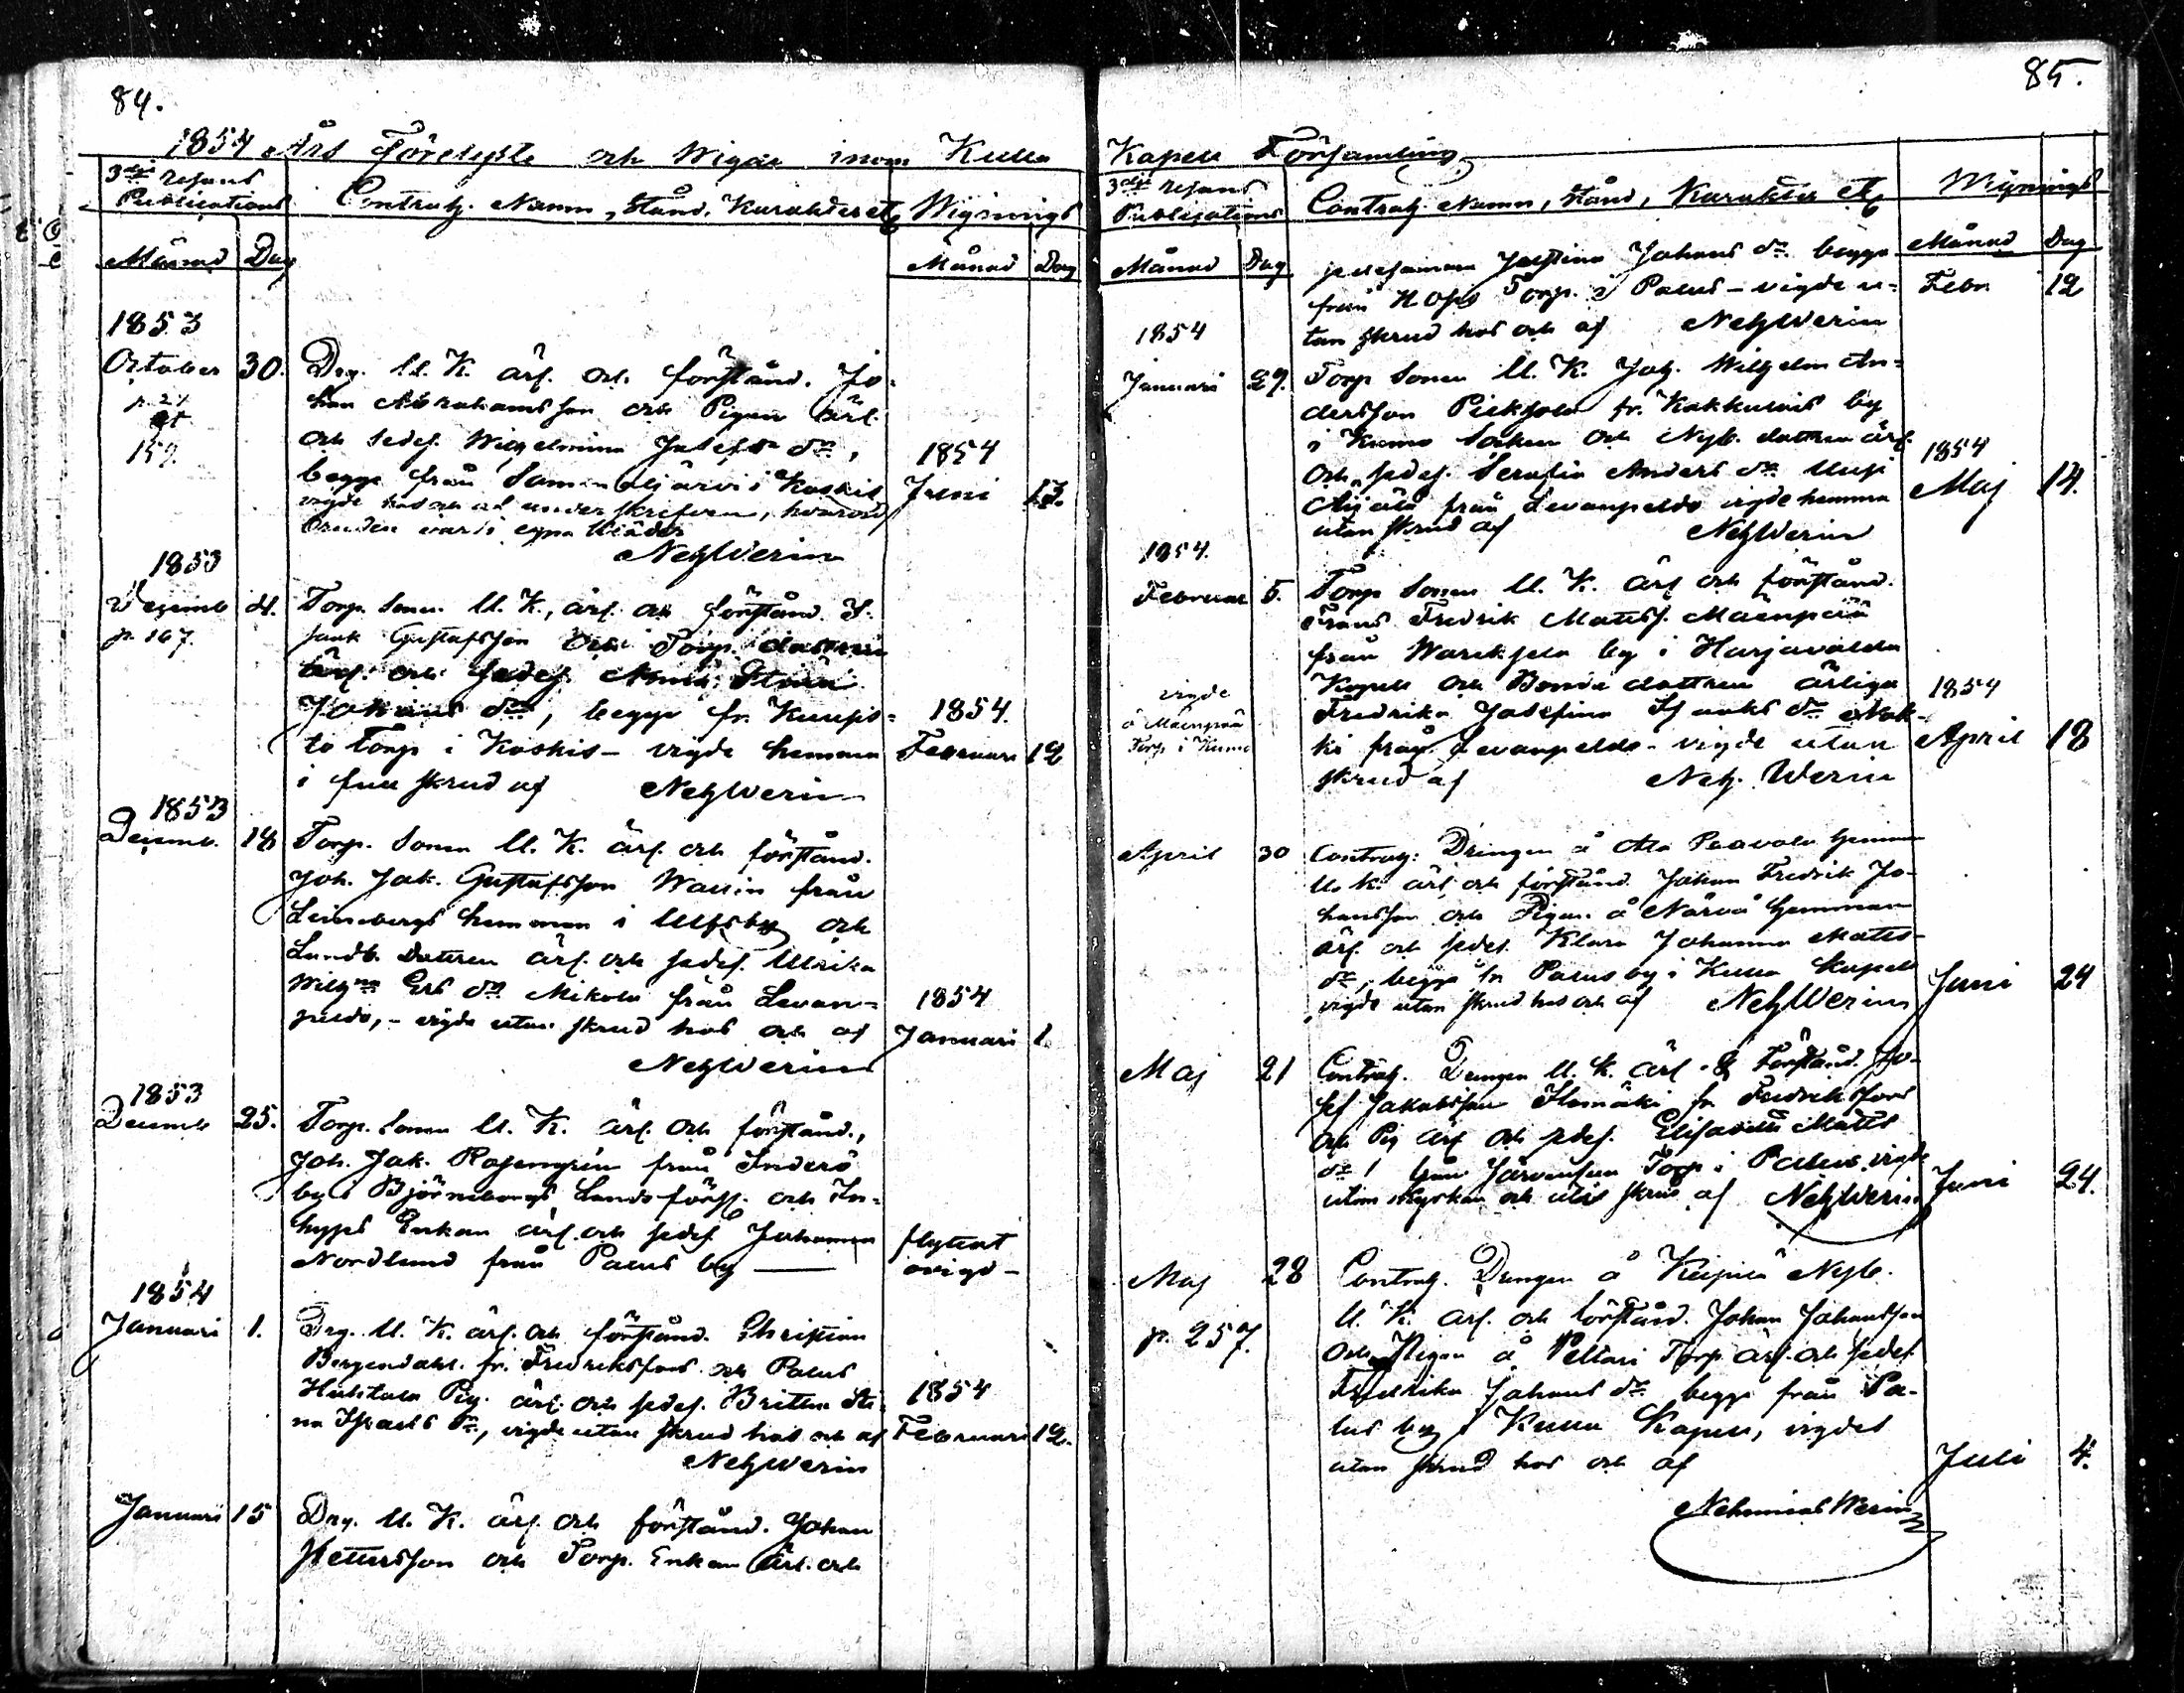 84.
1854 Års Förelyste och Wigde inom Kulla
3dje resans Publications
Contrah. Namn, Stånd, Karakter etc
Wignings
Månad Dag
Månad Dag
1853
October 30.
p. 24
159.
Drg. U. K. ärl. och förstånd. Jo-
han Abrahamsson och Pigan ärl.
och sedes. Wilhelmina Josefs dr,
begge från i Koskis
vigde hos och af underskrifven, hvarvid
bruden egna kläder
NehWerin
1854
Juni
1853
Decemb 4.
p. 167.
Torp. Sonen U. K., ärl. och förstånd. I-
saak Gustafsson och Torp. dottren
ärl. och sedes. Anna Stina
Johans dr, begge fr.
to Torp i Koskis - vigde hemma
i full skrud af NehWerin
1854.
Februari 12
1853
Decemb. 18
Torp. Sonen U. K. ärl. och förstånd.
Joh. Jak. Gustafsson Wallin från
Leinebergs hemman i Ulfsby och
Landb. Dottren ärl. och sedes. Ulrika
Wilhna Ers dr Mikola från Levan-
peldo, - vigde utan skrud hos och af
NehWerin
1854
Januari 1.
1853
Decemb 25.
Torp. Sonen U. K. ärl. och förstånd.,
Joh. Jak. Rosengrén från Inderö
by i Björneborgs Lands förs. och In-
hyses Enkan ärl. och sedes. Johanna
Nordlund från Palus by
flyttat
ovigd -
1854
Januari 1.
Drg. U. K. ärl. och förstånd. Christian
Bergendahl fr. Fredriksfors och Palus
Pig. ärl. och sedes. Britta Sti-
na Isaks dr, vigde utan skrud hos och af
NehWerin
1854
Februari 12.
Januari 15
Drg. U. K. ärl. och förstånd. Johan
Pettersson och Torp. Enkan ärl. och
85.
Kapell Församling
3dje resans Publications
Contrah. Namn, Stånd, Karakter etc
Wignings
Månad Dag
Månad Dag
sedesamma Justina Johans dr. begge
från Torp. i Palus - vigde u-
tan skrud hos och af NehWerin
Febr 12
1854
Januari 29.
Torp Sonen U. K. Joh. Wilhelm An-
dersson fr. Kakkulais by
i Kumo Socken och Nyb. dottren ärl.
och sedes. Serafia Anders dr Uusi
Äijälä från Levanpeldo vigde hemma
utan skrud af NehWerin
1854
Maj 14.
1854.
Februari 5.
Torp Sonen U. K. ärl och förstånd.
Frans Fredrik Matts. Mäenpää
från by i Harjavalda
Kapell och Bonde dottren ärliga
Fredrika Josefina Isaaks dr Nok-
ki från Levanpeldo - vigde utan
skrud af Neh. Werin
vigde
å Mäenpää
Torp i Kumo
1854
April 18
April 30
Contrah: Drengen å Ala Paavola hemman
U. K. ärl. och förstånd. Johan Fredrik Jo-
hansson och Pigan å Närvä hemman
ärl. och sedes. Klara Johanna Matts
dr, begge fr Palus by i Kulla Kapell
vigde utan skrud hos och af NehWerin
Juni 24
Maj 21
Contrah. Drengen U. K. ärl. & Förstånd. Jo-
sef Jakobsson fr Fredriksfors
och Pig ärl och sedes. Elisabeth Matts
dr från Järvensuu Torp i Palus vigde
utom kyrkan och utan skrud af NehWerin
Juni 24.
Maj 28
p. 257.
Contrah. Drengen å Nyb.
U. K. ärl. och förstånd. Johan Johansson
och Pigan å Peltari Torp ärl. och sedes
Fredrika Johans dr begge från Pa-
lus by i Kulla Kapell, vigdes
utan skrud hos och af
Nehemias Werin
Juli 4.